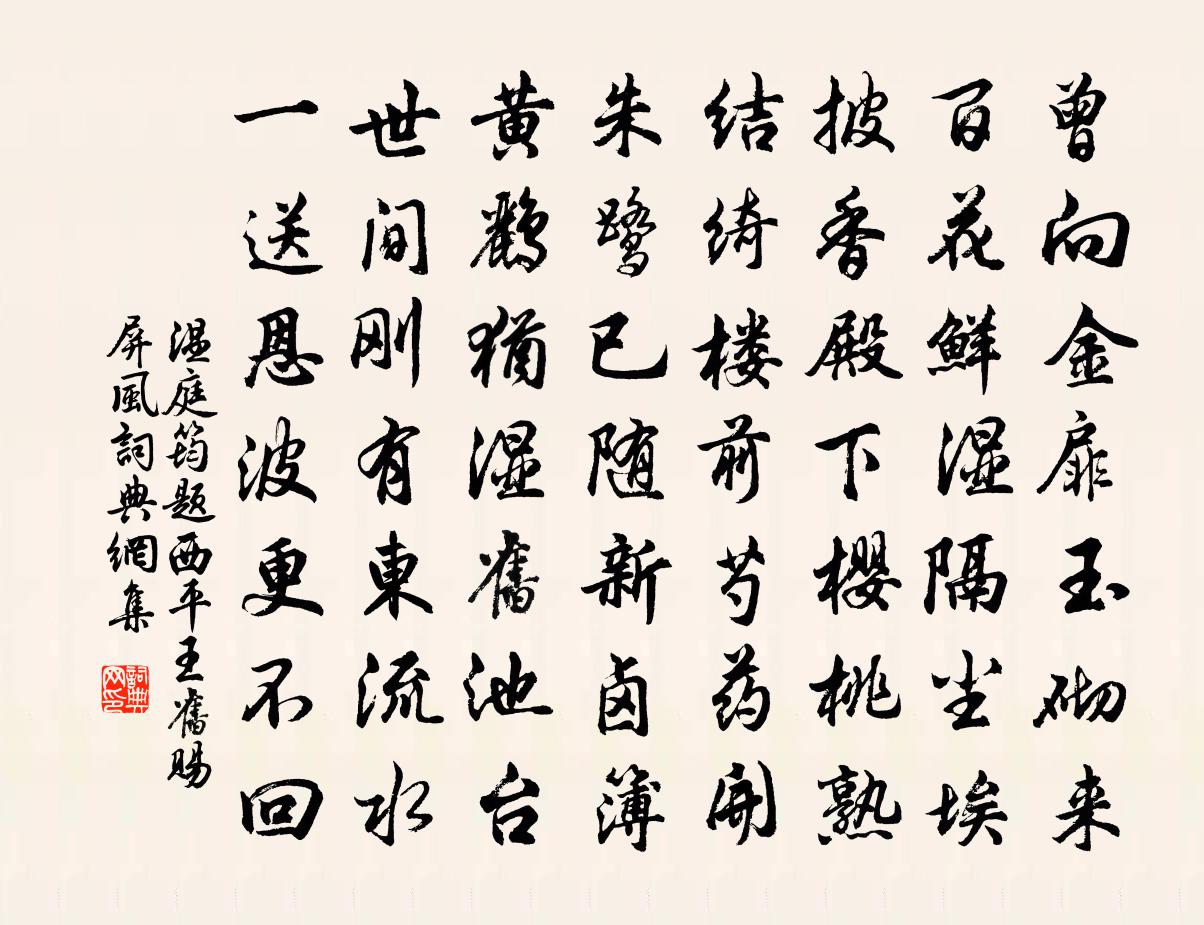 曾向金扉玉砌来
百花鲜湿隔尘埃
披香殿下櫻桃熟
结绮楼前芍药開
朱鹭已随新卤簿
黄鸝猶湿舊池台
世间刚有東流水
一送恩波更不回
温庭筠题西平王舊賜
屏風詞典網集
詞典网印